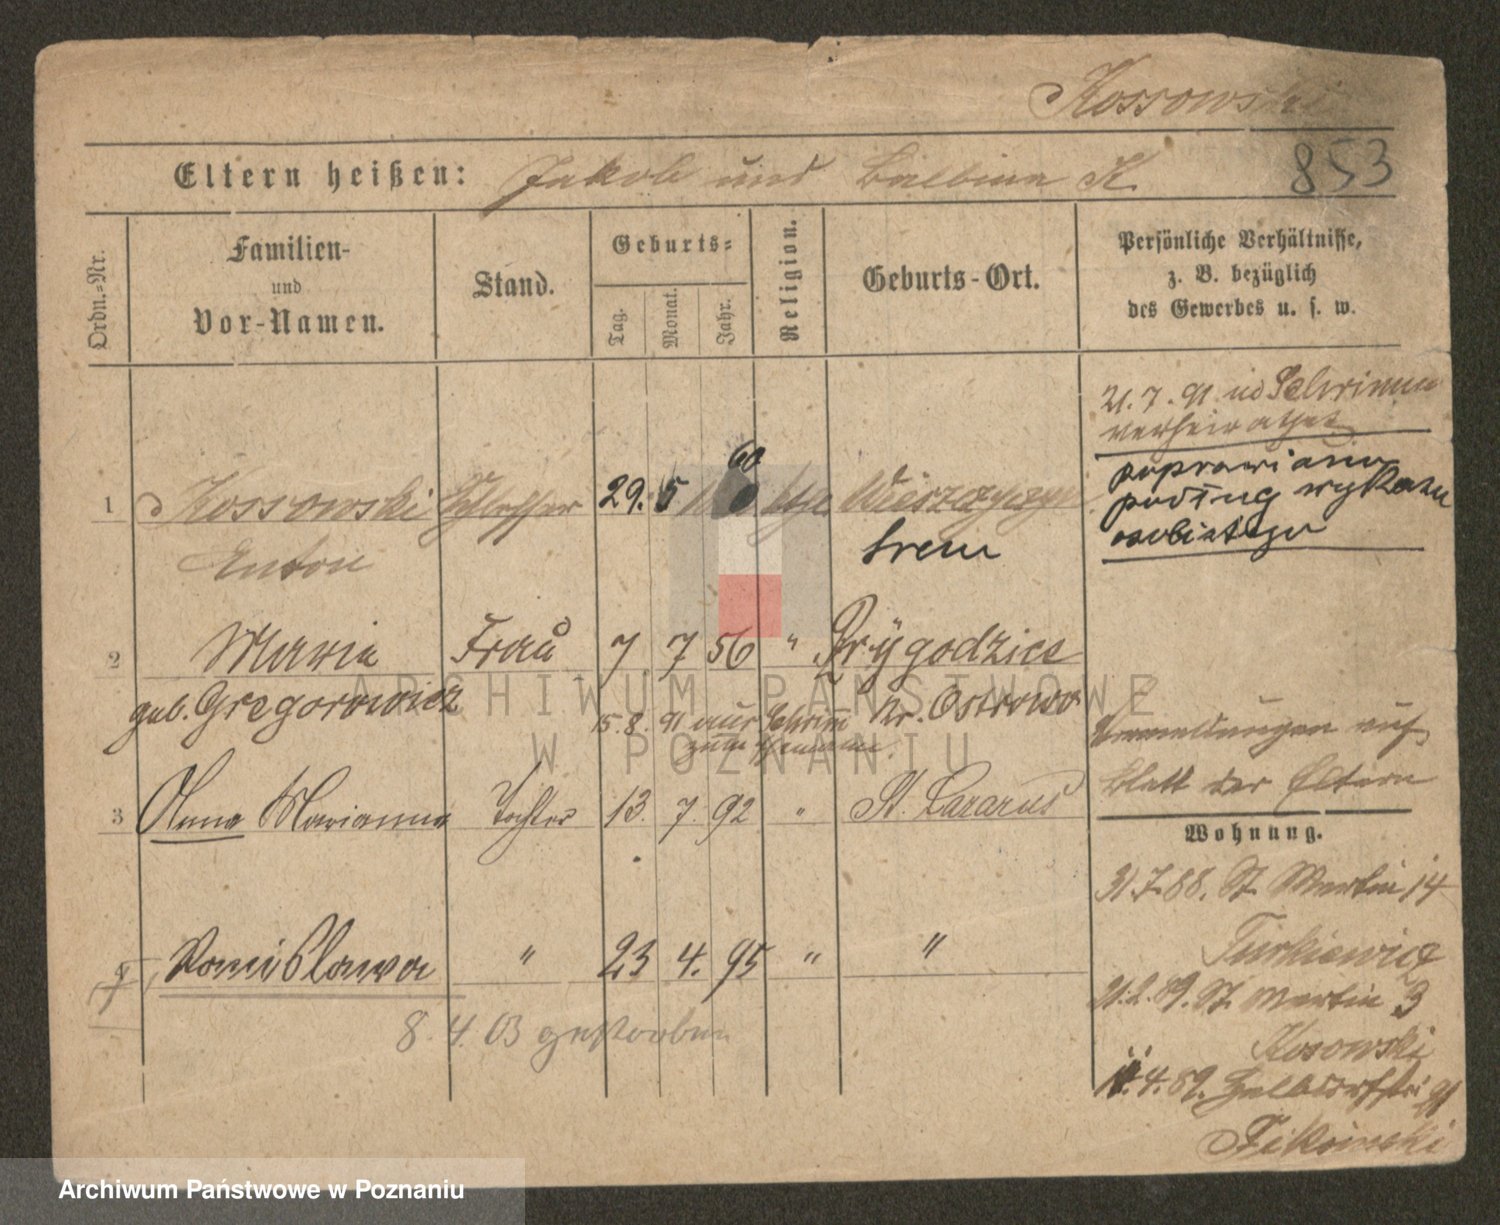 Kossowski
853
Eltern heißen: Jakob und Balbina K.
Ordn.-Nr.
Familien-
und
Vor-Namen.
Stand.
Geburts-
Tag.
Monat.
Jahr.
Religion.
Geburts-Ort.
Persönliche Verhältnisse,
z. B. bezüglich
des Gewerbes u. s. w.
21. 7. 91 in Schrimm
verheirathet
poprawiano
podług wykazu
osobistego
1 Kossowski Schlosser 29. 5 60 ktl
Anton
Srem
2 Maria Frau 7 7 56 " Przygodzice
geb. Gregorowicz Kr. Ostrowo
15. 8. 91 aus Schrimm
zum Ehemann
Anmeldungen auf
Blatt der Eltern
3 Anna Marianna Tochter 13. 7. 92 " St. Lazarus
Wohnung.
31. 7. 88. St. Martin 14
Turkiewicz
4 Stanislawa " 23 4. 95 " "
8. 4. 03 gestorben
21. 2. 89. St. Martin 3
Kosowski
4. 89.
ARCHIWUM PAŃSTWOWE
W POZNANIU
Archiwum Państwowe w Poznaniu